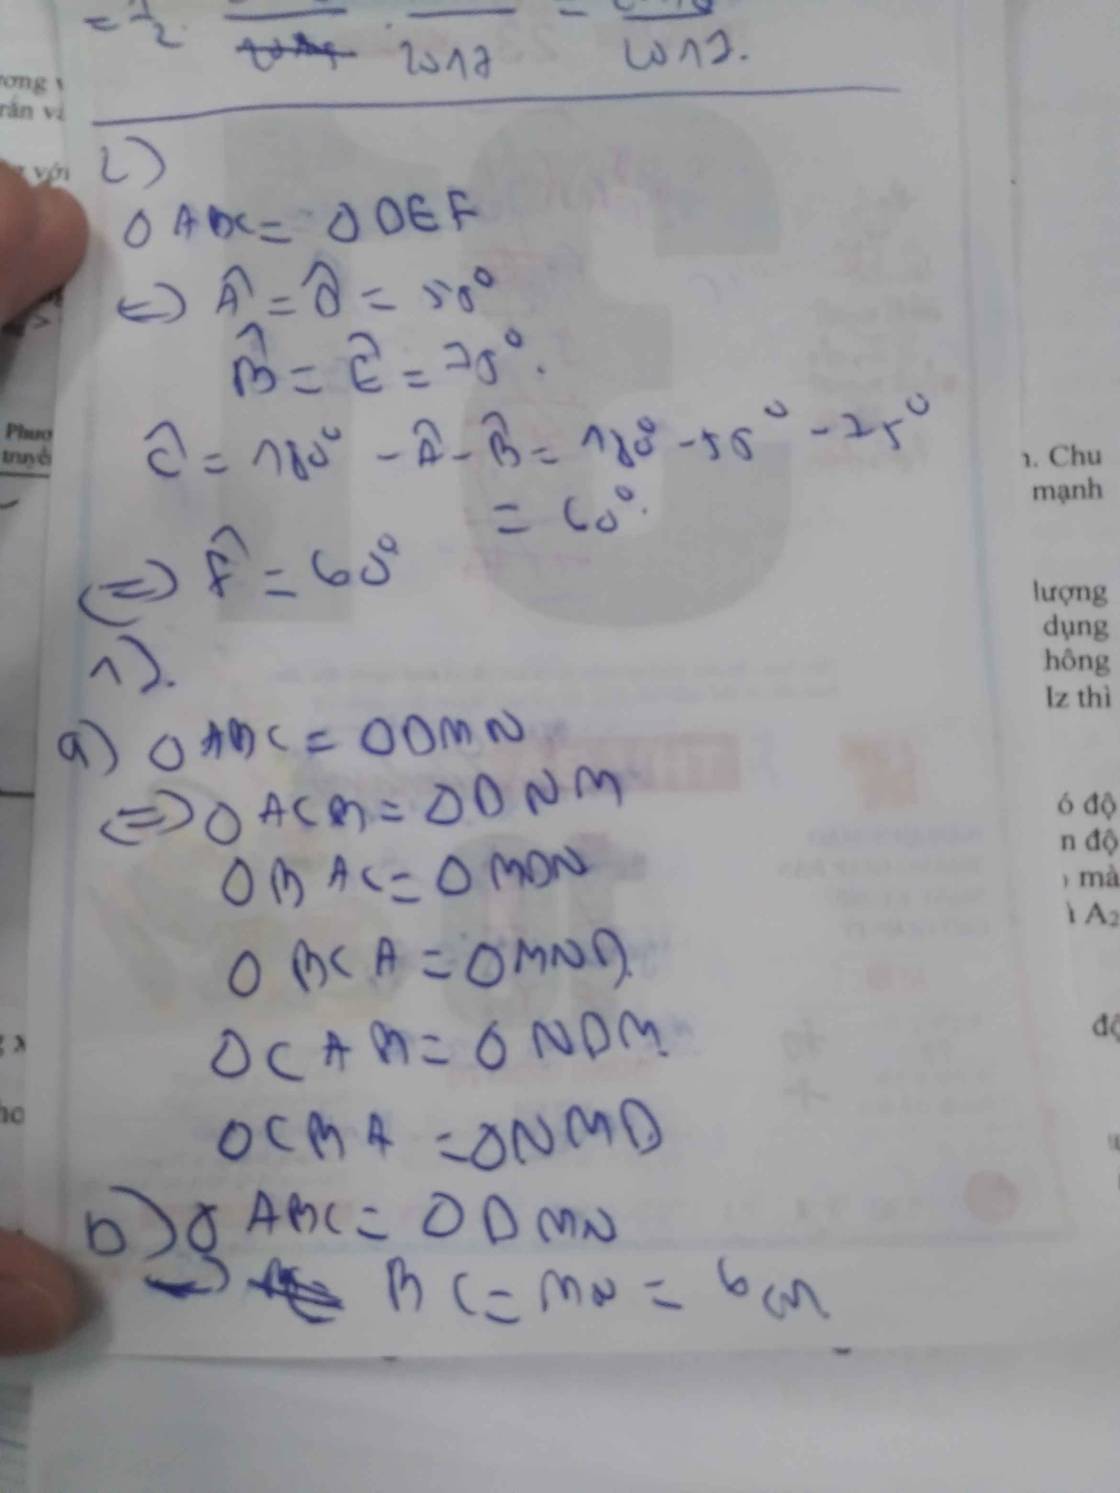 = 1/2 . = 
2017 2017.
2)
Δ ABC = Δ DEF
<=> Â = D̂ = 50°
B̂ = Ê = 70°.
Ĉ = 180° - Â - B̂ = 180° - 50° - 75°
= 60°.
<=> F̂ = 60°
1).
a) Δ ABC = Δ DMN
<=> Δ ACB = Δ DNM
Δ BAC = Δ MDN
Δ BCA = Δ MND.
Δ CAB = Δ NDM.
Δ CBA = Δ NMD.
b) Δ ABC = Δ DMN
BC = MN = 6cm
ương v
rắn và
với
Phươ
truyề
n. Chu
mạnh
lượng
dụng
hông
lz thì
ó độ
n độ
mà
ì A2
độ